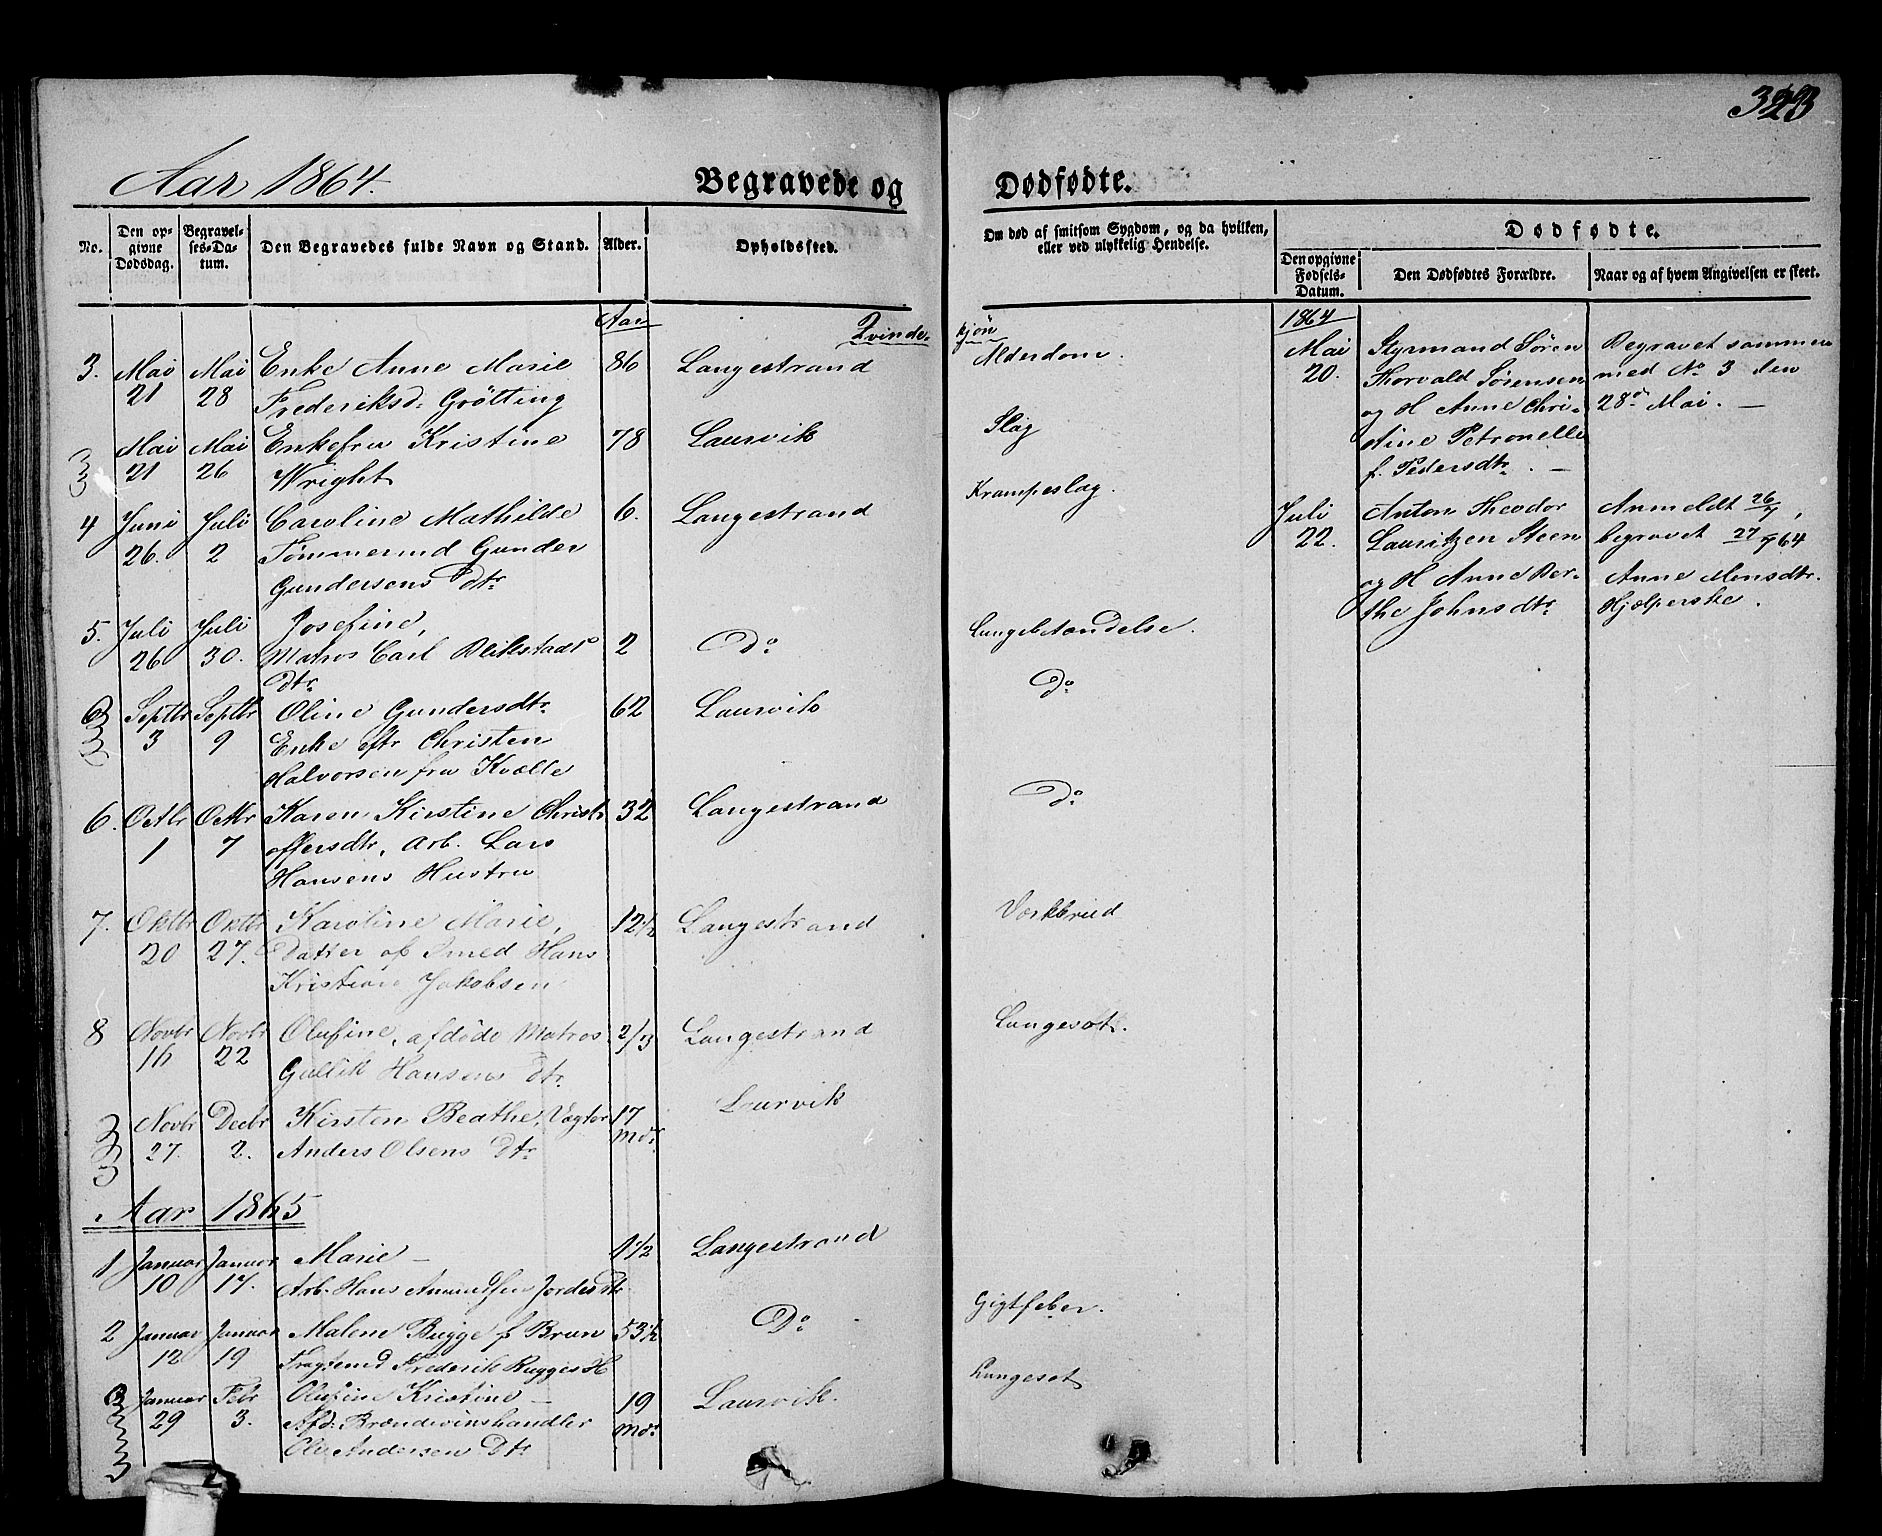 323
Aar 1864.
Begravede og Dødfødte.
No.
Den opgivne Dødsdag.
Begravelses-Datum.
Den Begravedes fulde Navn og Stand.
Alder.
Opholdssted.
Om død af smitsom Sygdom, og da hvilken, eller ved ulykkelig Hendelse.
Dødfødte.
Den opgivne Fødsels-Datum.
Den Dødfødtes Forældre.
Naar og af hvem Angivelsen er skeet.
Aar
Qvinde-
kjön
3. Mai Mai Enke Anne Marie 86 Langestrand Alderdom.
21 28 Frederiksd: Grötting
Mai Mai Enkefru Kristine 78 Laurvik Slag
21 26 Wright
4 Juni Juli Caroline Mathilde 6. Langestrand Krampeslag.
26. 2 Tømmermd Gunder
Gundersens Dtr
5. Juli Juli Josefine, 2 Do Lungebetændelse.
26 30. Matros Carl
Dtr
Septbr Septbr Oline Gundersdtr 62 Laurvik Do
3 9 Enke eftr Christen
Halvorsen fra Kvælle
6. Octbr Octbr Karen Kirstine Christ 32 Langestrand Do
1 7 offersdtr, Arb. Lars
Hansens Hustru
7. Oktbr Oktbr Karoline Marie, 12½ Langestrand Værkbrud
20 27. Datter af Smed Hans
Kristian Jakobsen
8 Novbr Novbr Olufine, afdöde Matros 2/3 Langestrand Lungesot.
16 22 Gullik Hansens Dtr
Novbr Decbr Kirsten Beathe, Vægter 17 Laurvik
27. 2. Anders Olsens Dtr Mdr
Aar 1865
1 Januar Januar Marie 1½ Langestrand
10 17. Arb. Hans
2 Januar Januar Malene Bugge f Brun 53½ Do Gigtfeber.
12 19 Frederik Bugges H
Januar Febr Olufine Kristine 19 Laurvik. Lungesot
29 3. Afd: Brændevinshandler Mdr
Ole Andersen Dtr
1864
Mai Styrmand Sören Begravet sammen
20. Thorvald Sörensen med No 3 den
og H Anne Chri- 28de Mai.
stine Petronelle
f. Pedersdtr.
Juli Anton Theodor Anmeldt 26/7,
22. Lauritzen Steen begravet 27/7 64
og H Anne Ber- Anne Monsdtr.
the Johnsdtr Hjælperske.